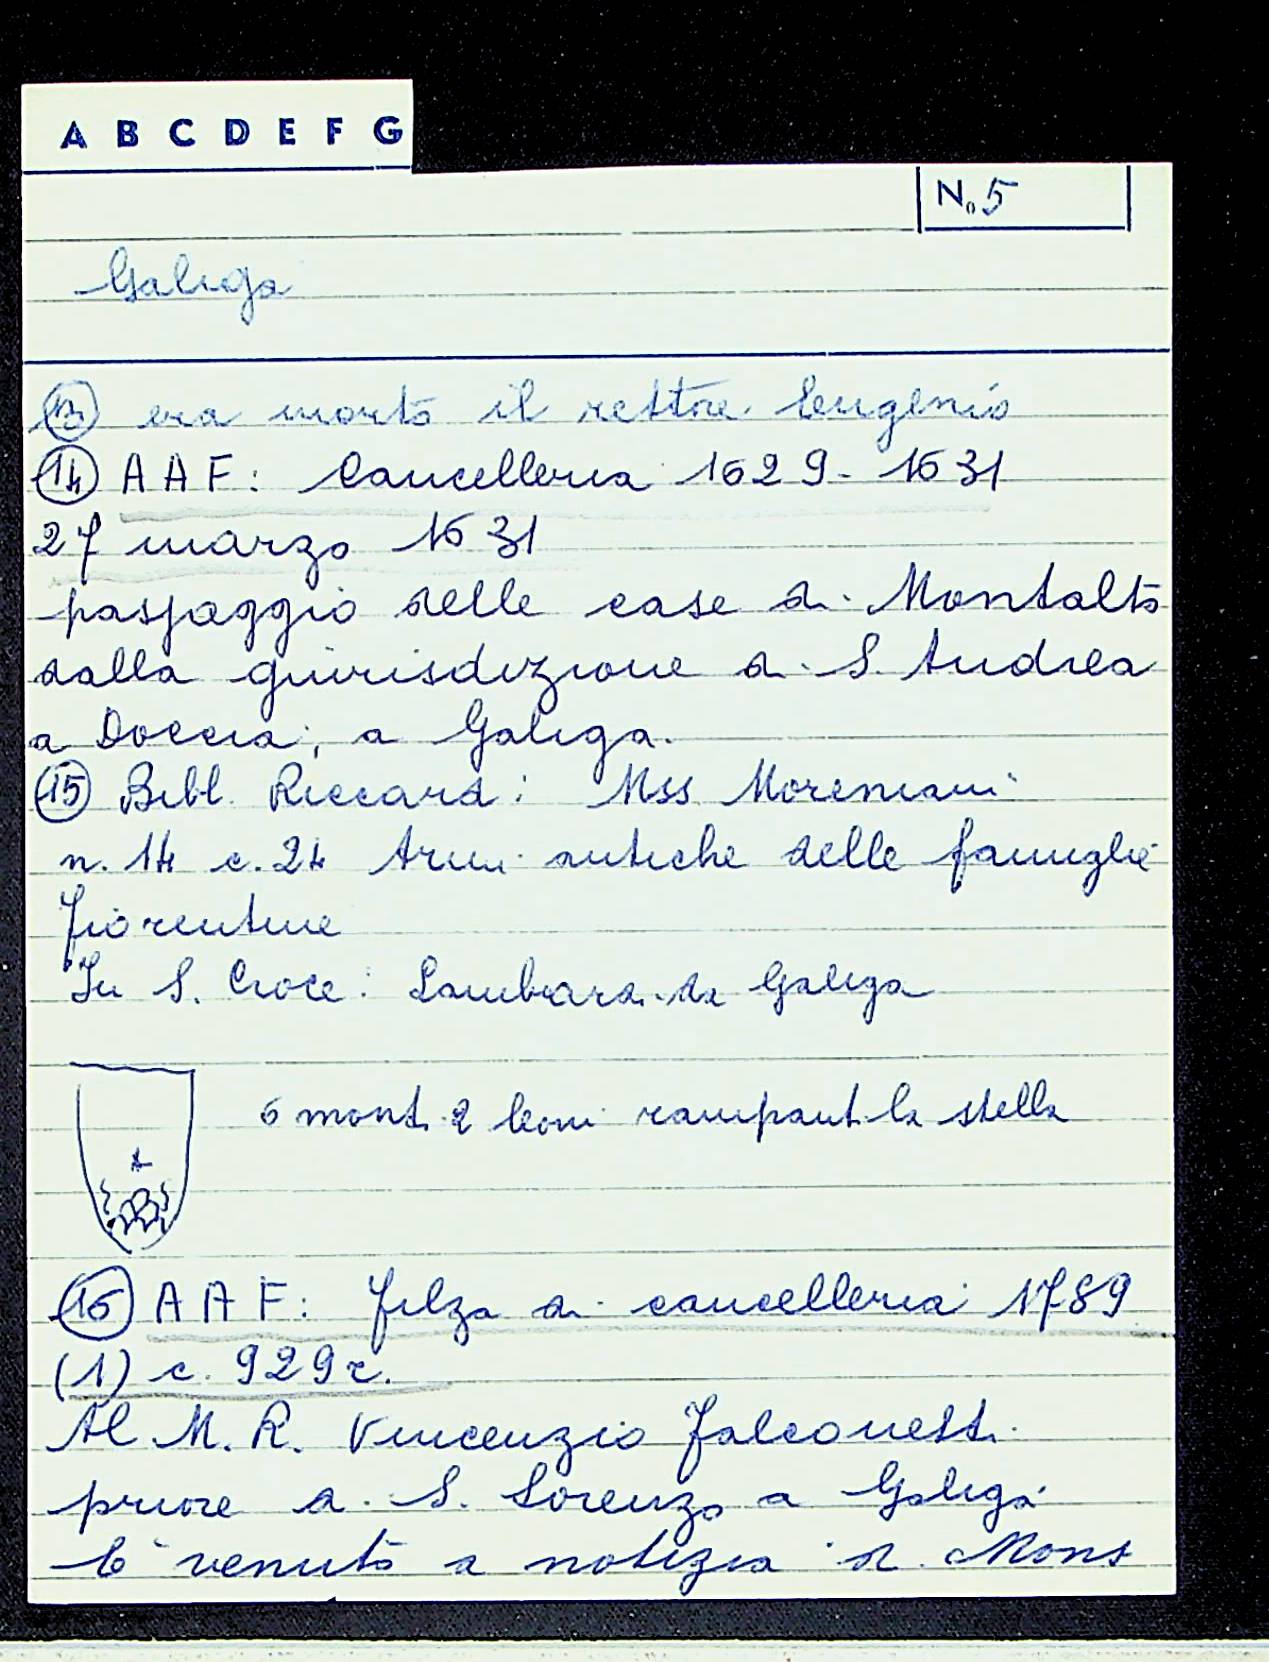 A B C D E F G
No 5
Galiga
(13) era morto il rettore Eugenio
(14) AAF: Cancelleria 1629-1631
27 marzo 1631
passaggio delle case di Montalto
dalla giurisdizione di S. Andrea
a Doccia, a Galiga.
(15) Bibl. Riccard: Mss Moreniani
n. 14 c. 24 Armi antiche delle famiglie
fiorentine
In S. Croce: Lambardi da Galiga
6 monti 2 leoni rampanti la stella
(16) AAF: filza di cancelleria 1789
(1) c. 929r.
Al M. R. Vincenzio Falconetti
priore di S. Lorenzo a Galiga
E' venuto a notizia di Mons